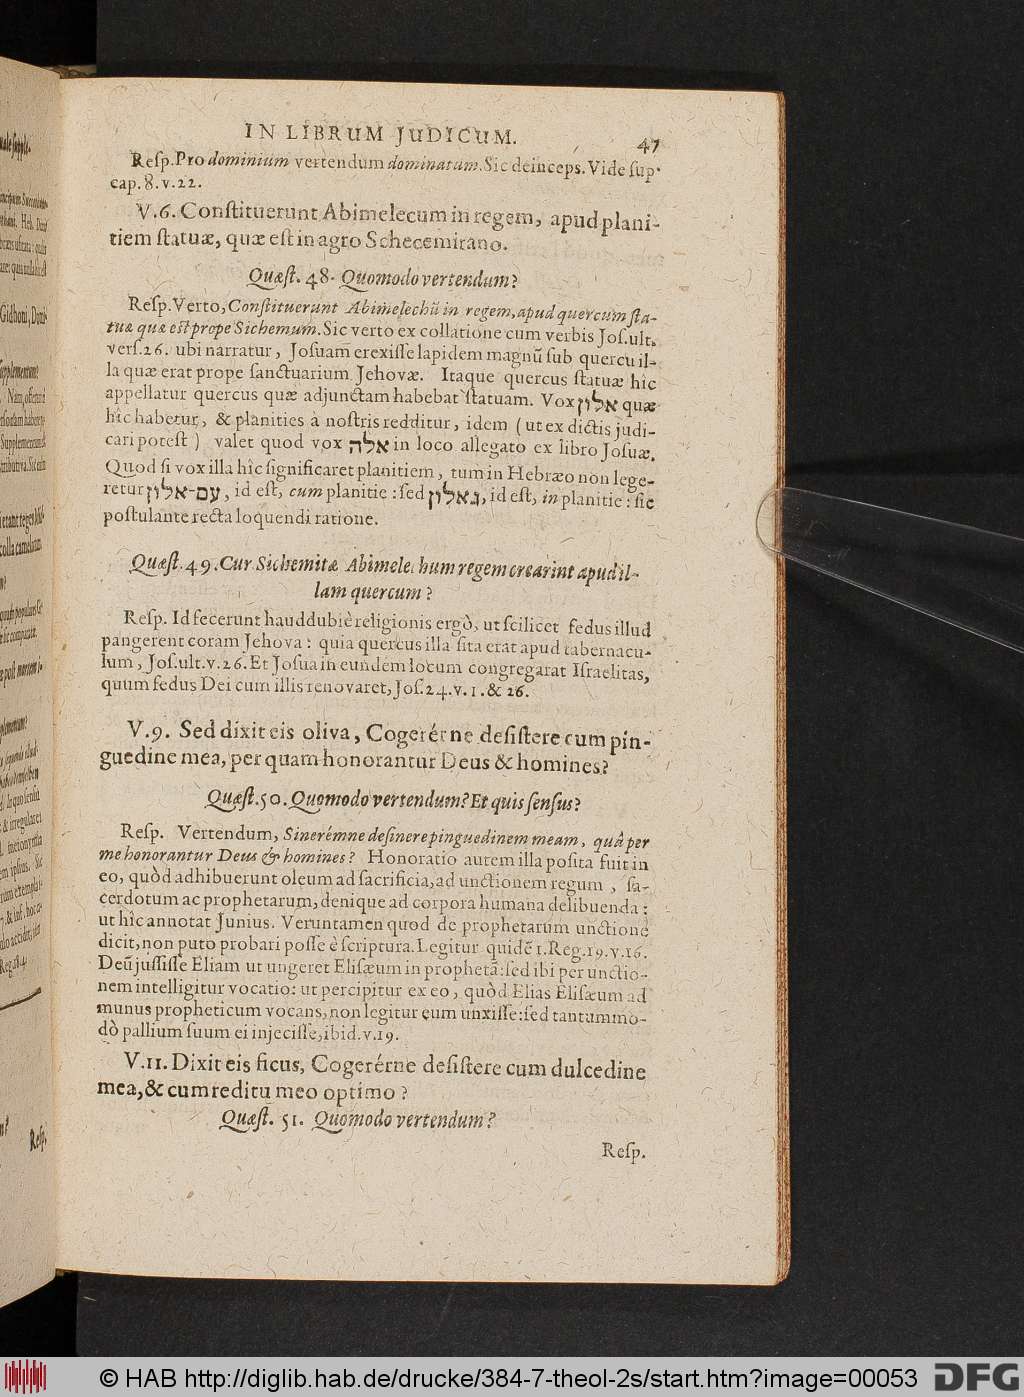 IN LIBRUM JUDICUM. 47
Resp. Pro dominium vertendum dominatum. Sic deinceps. Vide sup.
cap. 8. v. 22.
V. 6. Constituerunt Abimelecum in regem, apud plani-
tiem statuæ, quæ est in agro Schecemirano.
Quæst. 48. Quomodo vertendum?
Resp. Verto, Constituerunt Abimelechū in regem, apud quercum sta-
tuæ quæ est prope Sichemum. Sic verto ex collatione cum verbis Jos. ult.
vers. 26. ubi narratur, Josuam erexisse lapidem magnū sub quercu il-
la quæ erat prope sanctuarium Jehovæ. Itaque quercus statuæ hîc
appellatur quercus quæ adjunctam habebat statuam. Vox אלון quæ
hîc habetur, & planities à nostris redditur, idem (ut ex dictis judi-
cari potest) valet quod vox אלה in loco allegato ex libro Josuæ.
Quod si vox illa hîc significaret planitiem, tum in Hebræo non lege-
retur עם-אלון, id est, cum planitie: sed באלון, id est, in planitie: sic
postulante recta loquendi ratione.
Quæst. 49. Cur Sichemitæ Abimelechum regem crearint apud il-
lam quercum?
Resp. Id fecerunt haud dubiè religionis ergò, ut scilicet fedus illud
pangerent coram Jehova: quia quercus illa sita erat apud tabernacu-
lum, Jos. ult. v. 26. Et Josua in eundem locum congregarat Israelitas,
quum fedus Dei cum illis renovaret, Jos. 24. v. 1. & 26.
V. 9. Sed dixit eis oliva, Cogerérne desistere cum pin-
guedine mea, per quam honorantur Deus & homines?
Quæst. 50. Quomodo vertendum? Et quis sensus?
Resp. Vertendum, Sinerémne desinere pinguedinem meam, quâ per
me honorantur Deus & homines? Honoratio autem illa posita fuit in
eo, quòd adhibuerunt oleum ad sacrificia, ad unctionem regum, sa-
cerdotum ac prophetarum, denique ad corpora humana delibuenda:
ut hîc annotat Junius. Veruntamen quod de prophetarum unctione
dicit, non puto probari posse è scriptura. Legitur quidē 1. Reg. 19. v. 16.
Deū jussisse Eliam ut ungeret Elisæum in prophetā: sed ibi per unctio-
nem intelligitur vocatio: ut percipitur ex eo, quòd Elias Elisæum ad
munus propheticum vocans, non legitur eum unxisse: sed tantummo-
dò pallium suum ei injecisse, ibid. v. 19.
V. 11. Dixit eis ficus, Cogerérne desistere cum dulcedine
mea, & cum reditu meo optimo?
Quæst. 51. Quomodo vertendum?
Resp.
Resp.
© HAB http://diglib.hab.de/drucke/384-7-theol-2s/start.htm?image=00053
DFG